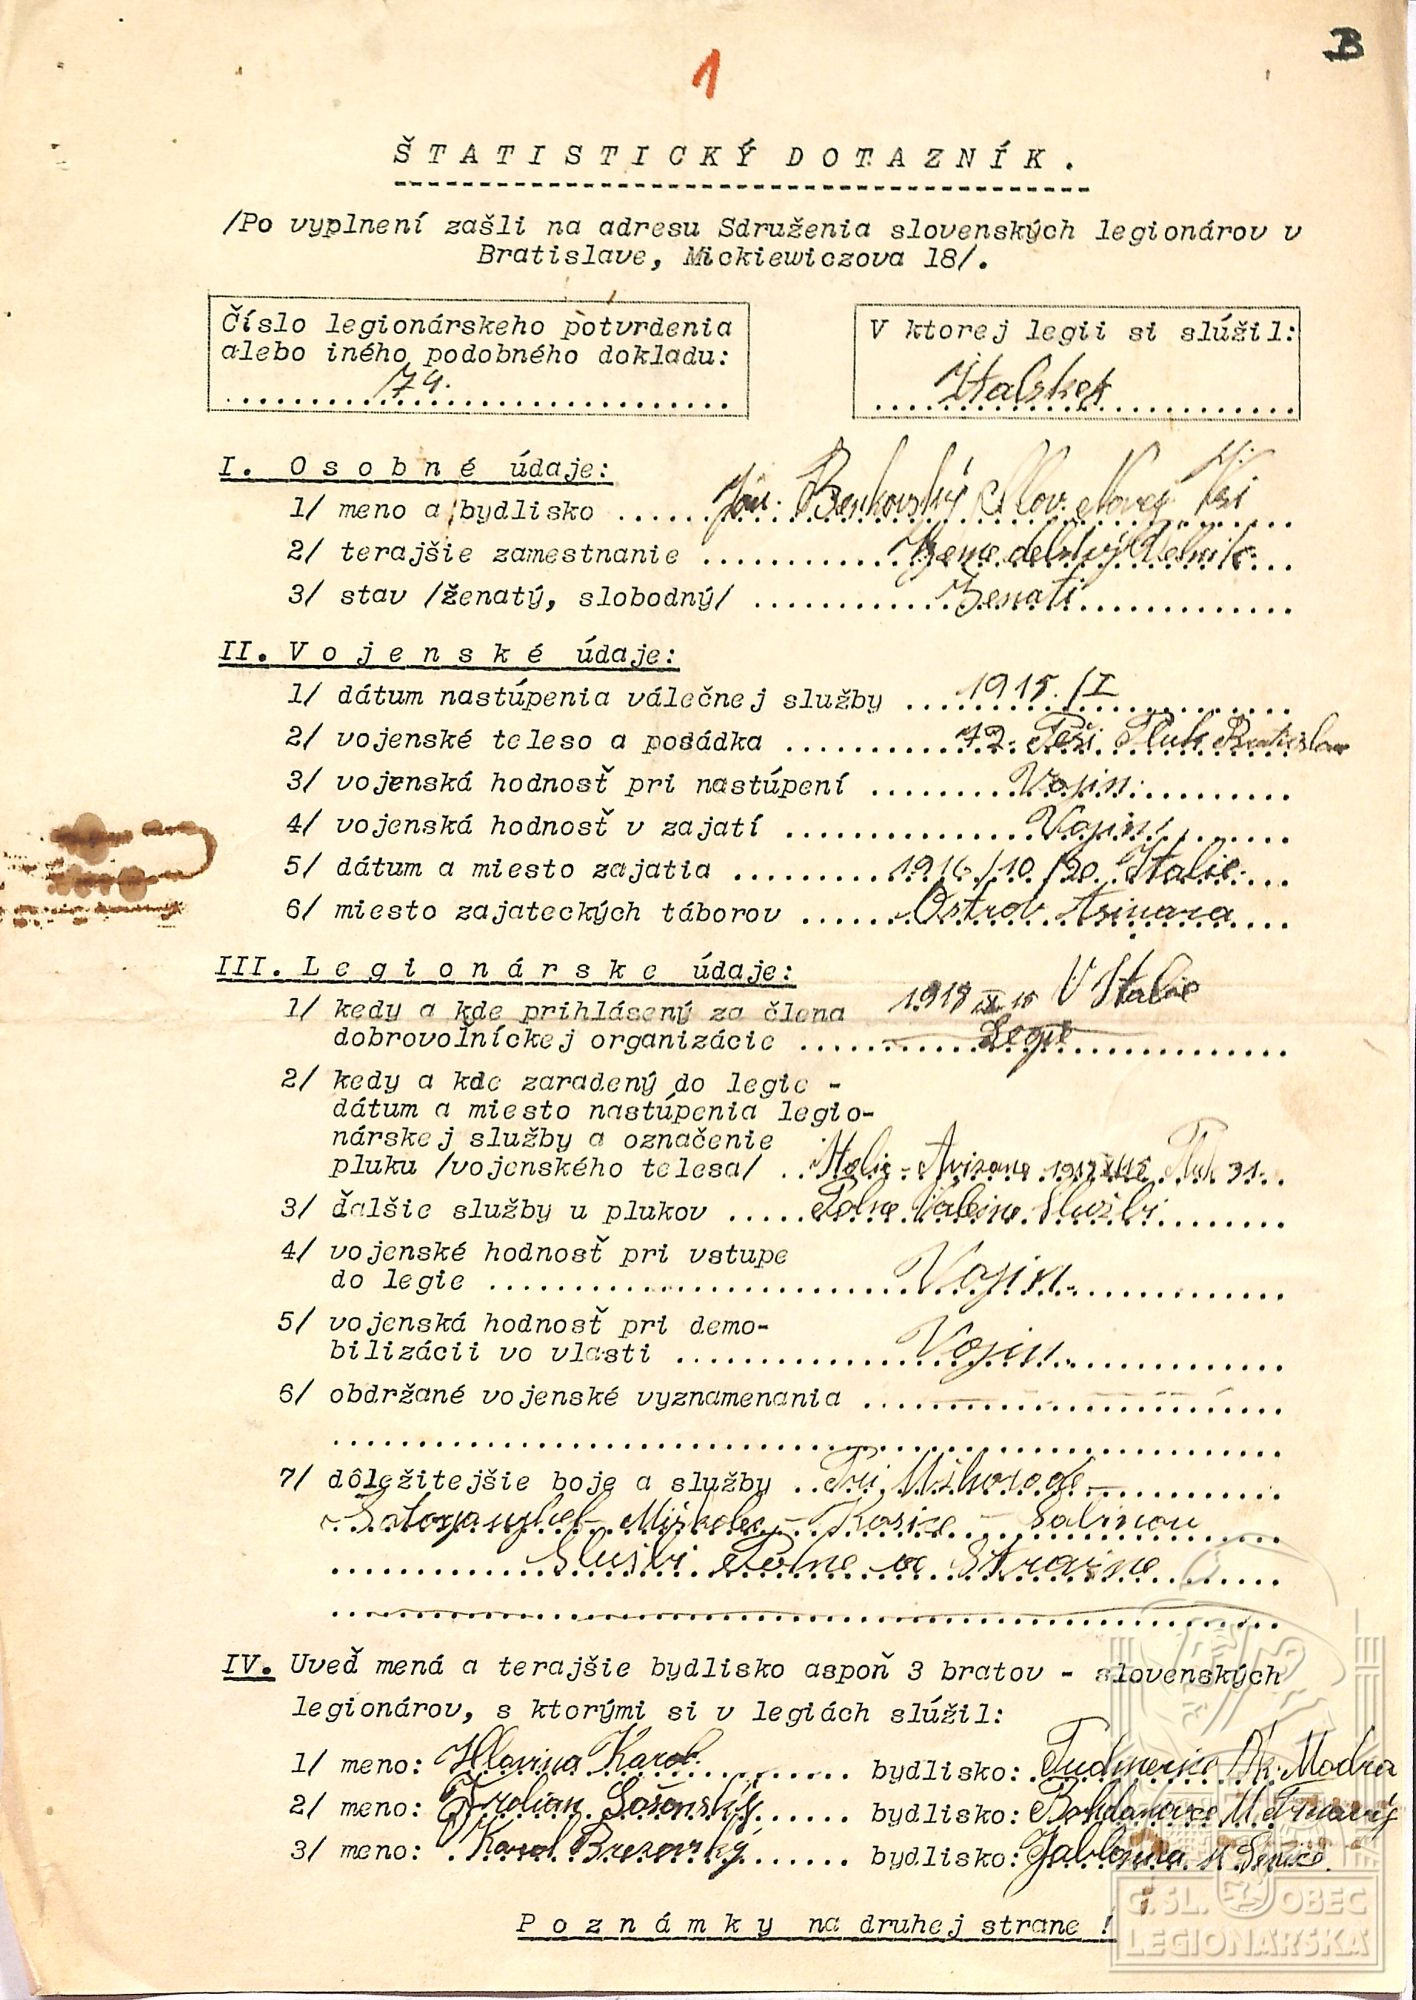 B
1
ŠTATISTICKÝ DOTAZNÍK.
/Po vyplnení zašli na adresu Sdruženia slovenských legionárov v
Bratislave, Mickiewiczova 18/.
Číslo legionárskeho potvrdenia
alebo iného podobného dokladu:
74.
V ktorej legii si slúžil:
Italskej
I. Osobné údaje:
1/ meno a bydlisko Ján Benkovský Slov. Novej Vsi
2/ terajšie zamestnanie Zeme delský Delnik
3/ stav /ženatý, slobodný/ Ženatí
II. Vojenské údaje:
1/ dátum nastúpenia válečnej služby 1915./I
2/ vojenské teleso a posádka 72. Peši Pluk Bratislava
3/ vojenská hodnosť pri nastúpení Vojin.
4/ vojenská hodnosť v zajatí Vojin
5/ dátum a miesto zajatia 1916/10/20 Italie
6/ miesto zajateckých táborov Ostrob Asinara
III. Legionárske údaje:
1/ kedy a kde prihlásený za člena 1918 V Italie
dobrovolníckej organizácie Legie
2/ kedy a kde zaradený do legie -
dátum a miesto nastúpenia legio-
nárskej služby a označenie
pluku /vojenského telesa/ Italie - Avizano 1918 Pluk 31.
3/ ďalšie služby u plukov Polne Službi
4/ vojenské hodnosť pri vstupe
do legie Vojin.
5/ vojenská hodnosť pri demo-
bilizácii vo vlasti Vojin.
6/ obdržané vojenské vyznamenania
7/ dôležitejšie boje a služby Pri Užhorode -
Miškolec - Kosice -
Službi Polne a Stražne
IV. Uveď mená a terajšie bydlisko aspoň 3 bratov - slovenských
legionárov, s ktorými si v legiách slúžil:
1/ meno: Hlavina Karol bydlisko: Ok. Modra
2/ meno: Šošonský bydlisko: Bohdanovce
3/ meno: Karol Brezovský bydlisko: Jablonica
Poznámky na druhej strane !
Č.SL. OBEC
LEGIONÁRSKÁ